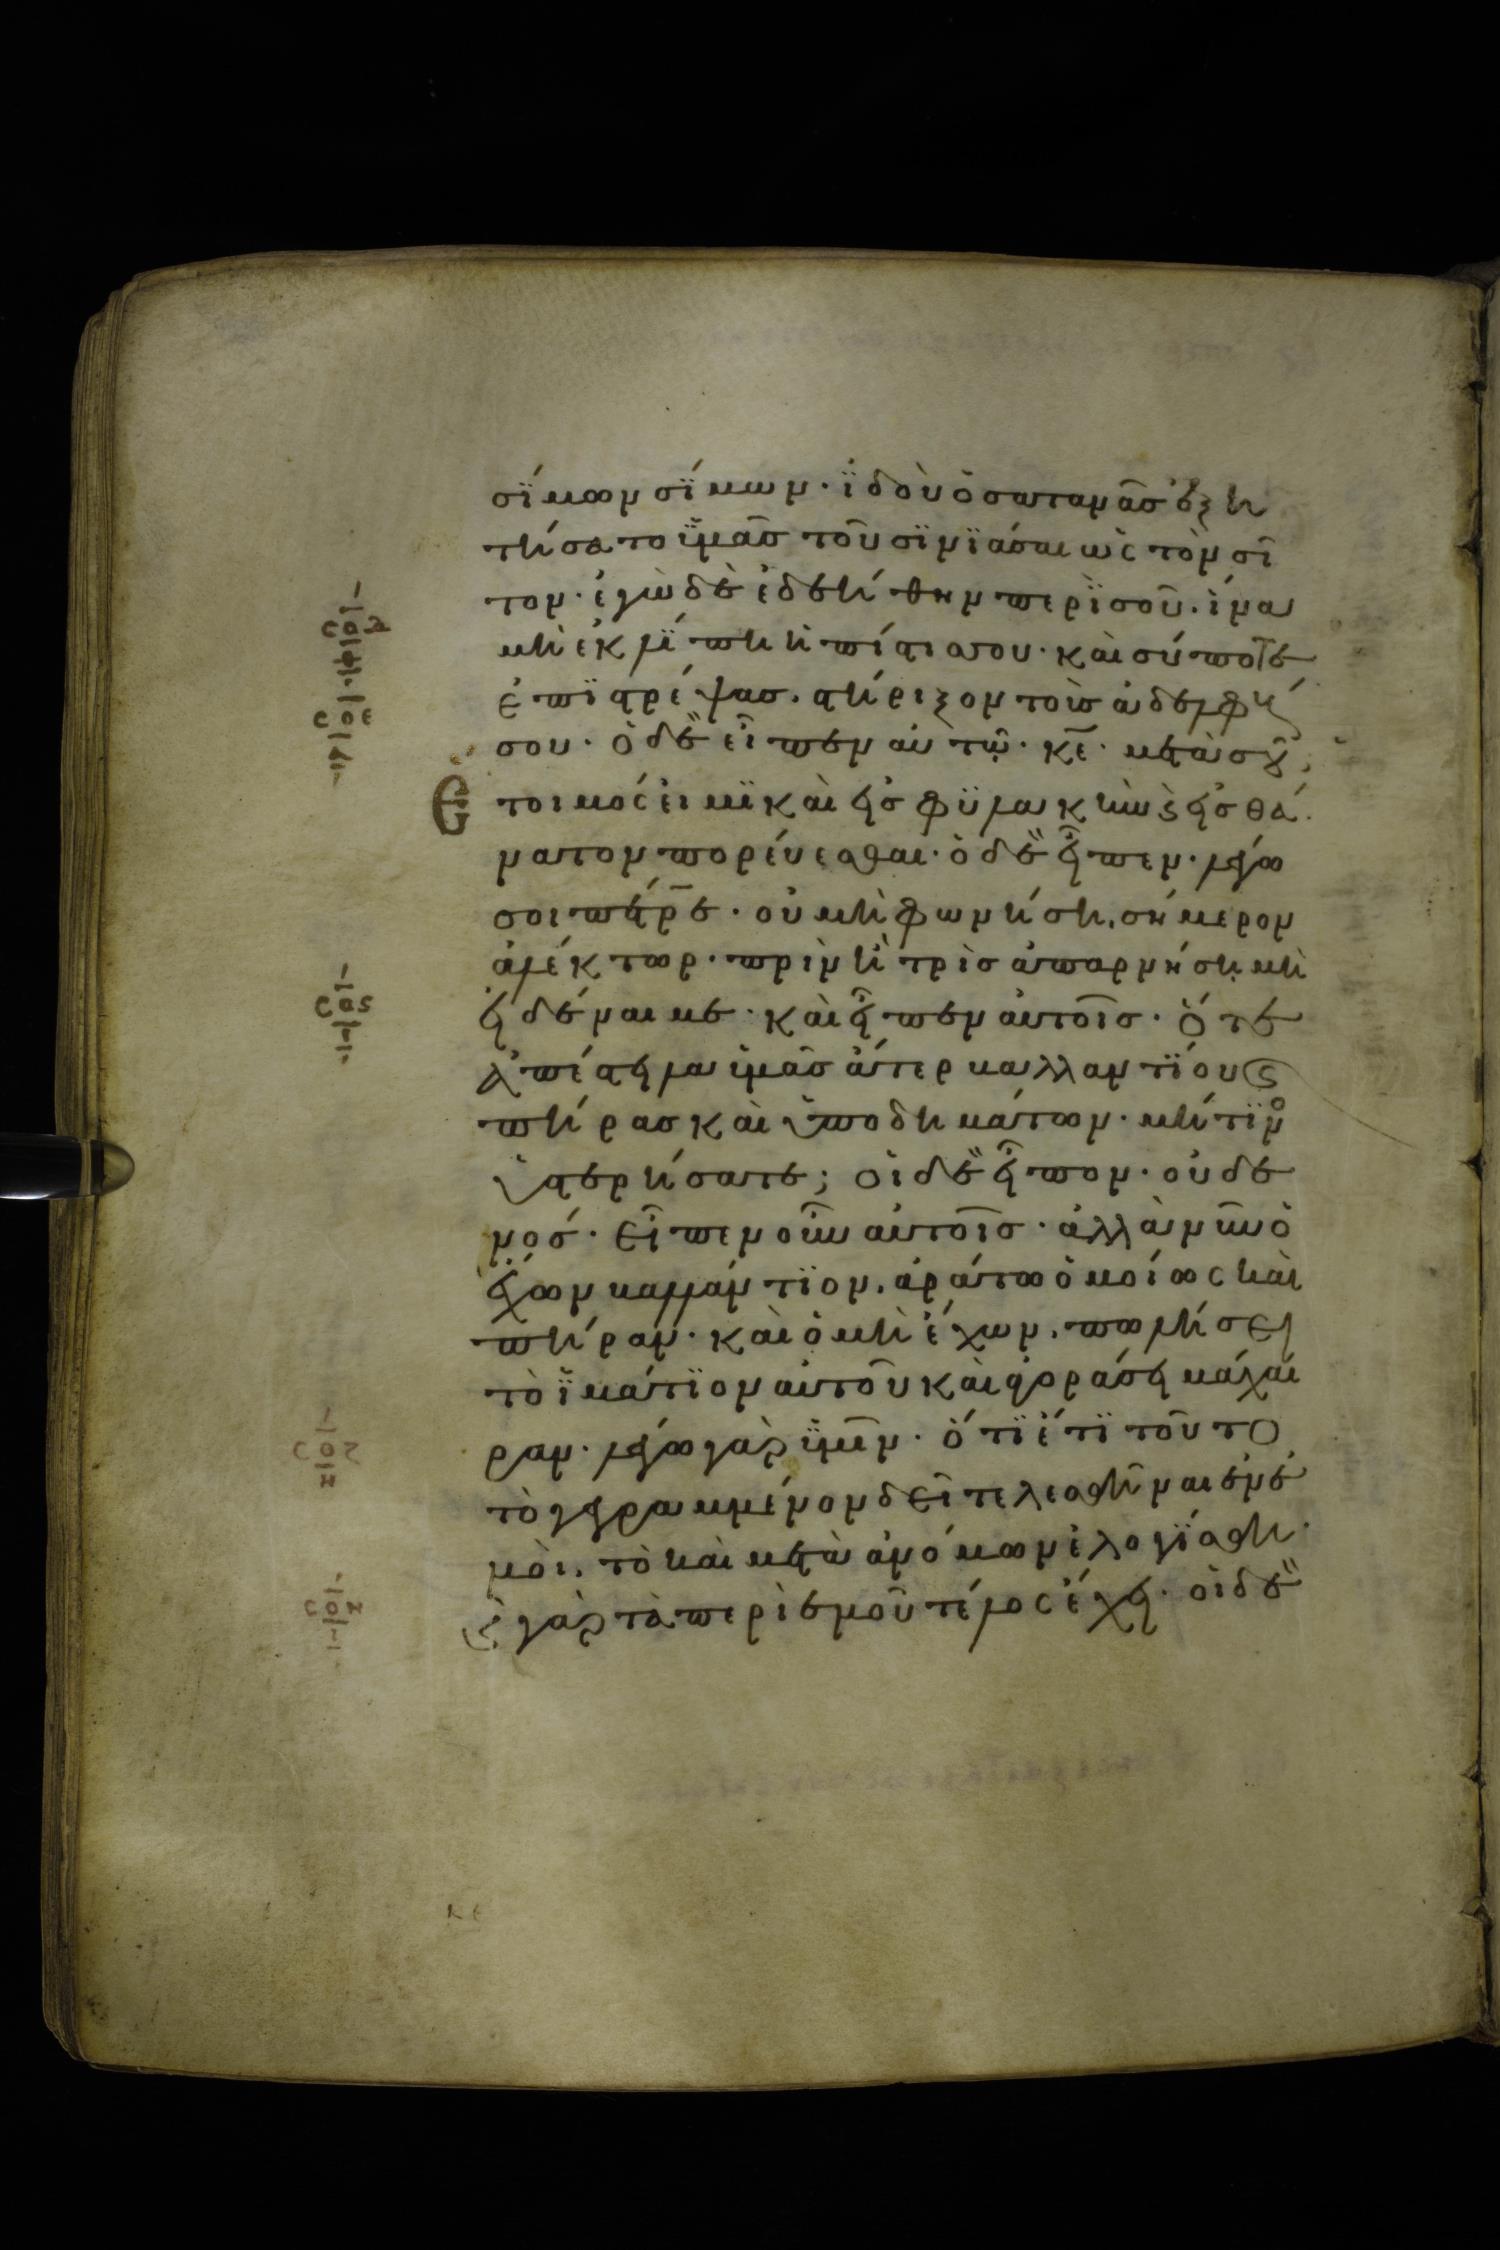 σϊμων σϊμων· ϊδοὺ ὁ σατανᾶσ ἐξη
τήσατο ὑμᾶσ τοῦ σϊνϊάσαι ὡς τὸν σῖ
τον· ἐγὼ δὲ ἐδεήθην περῒ σοῦ. ἵνα
μὴ ἐκλίπη ἡ πίστισ σου· καὶ σύ ποτε
ἐπϊστρέψασ. στήριξον τοὺσ ἀδελφούς
σου· ὁ δὲ εἶπεν αὐτῷ· κε̅· μετὰ σοῦ
Ἕτοιμός εἰμϊ καὶ εἰσ φϋλακὴν καὶ εἰσ θά
νατον πορέυεσθαι· ὁ δὲ εἶπεν· λέγω
σοι πέτρε· οὐ μὴ φωνήση. σήμερον
ἀλέκτωρ· πρὶν ἢ τρὶσ ἀπαρνήση μὴ
εἰδέναι με· καὶ εἶπεν αὐτοῖσ· ὅτε
ἀπέστειλα ὑμᾶσ ἄτερ βαλλαντϊου καὶ
πήρασ καὶ ὑποδημάτων· μή τϊνο
ὑστερήσατε; οἱ δὲ εἶπον· οὐδε
νόσ· εἶπεν οὖν αὐτοῖσ· ἀλλὰ νῦν ὁ
ἔχων βαλλάντϊον. ἀράτω ὁμοίως καὶ
πήραν· καὶ ὁ μὴ ἔχων. πωλήσει
τὸ ϊμάτϊον αὐτοῦ καὶ ἀγοράσει μάχαι
ραν· λέγω γὰρ ὑμῖν· ὅτϊ ἔτϊ τοῦτο
τὸ γεγραμμένον δεῖ τελεσθῆναι ἐν ἐ
μοὶ. τὸ καὶ μετὰ ἀνόμων ἐλογϊσθη·
καὶ γὰρ τὰ περὶ ἐμοῦ τέλος ἔχει· οἱ δὲ